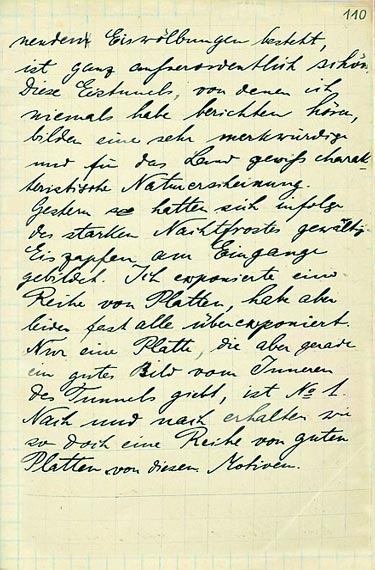 110
nenden Eiswölbungen besteht,
ist ganz aufserordentlich schön.
Diese Eistunnels, von denen ich
niemals habe berichten hören,
bilden eine sehr merkwürdige
und für das Land gewifs charak-
teristische Naturerscheinung.
Gestern hatten sich infolge
des starken Nachtfrostes gewaltige
Eiszapfen am Eingange
gebildet. Ich exponierte eine
Reihe von Platten, habe aber
leider fast alle überexponiert.
Nur eine Platte, die aber gerade
ein gutes Bild vom Inneren
des Tunnels giebt, ist No 1.
Nach und nach erhalten wir
so doch eine Reihe von guten
Platten von diesen Motiven.